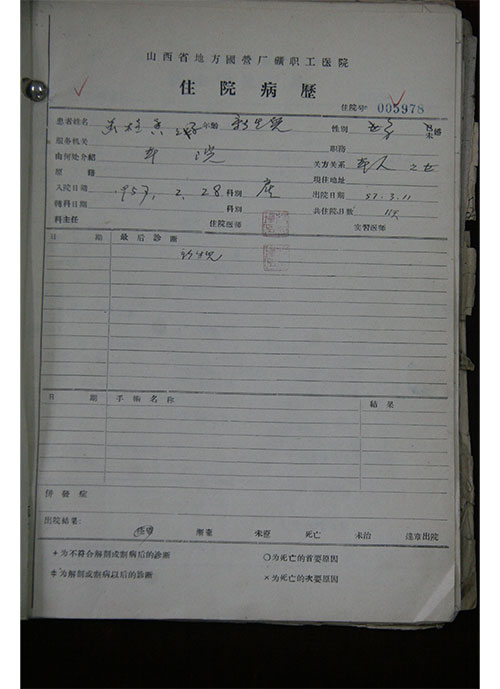 山西省地方國营厂礦职工医院
住院病歷
住院号 005978
患者姓名 之子 年齡 新生児 性別 女 未婚
服务机关 职務
由何处介紹 本院 关方关系 本人之女
原籍 現住地址
入院日期 1957. 2. 28 科別 産 出院日期 57.3.11
轉科日期 科別 共住院日数 11天
科主任 住院医师 实習医师
日期 最后診断
新生児
日期 手術名称 結果
併發症
出院結果: 漸重 未癒 死亡 未治 違章出院
+为不符合解剖或割病后的診断 〇为死亡的首要原因
‡为解剖或割病以后的診断 ×为死亡的次要原因